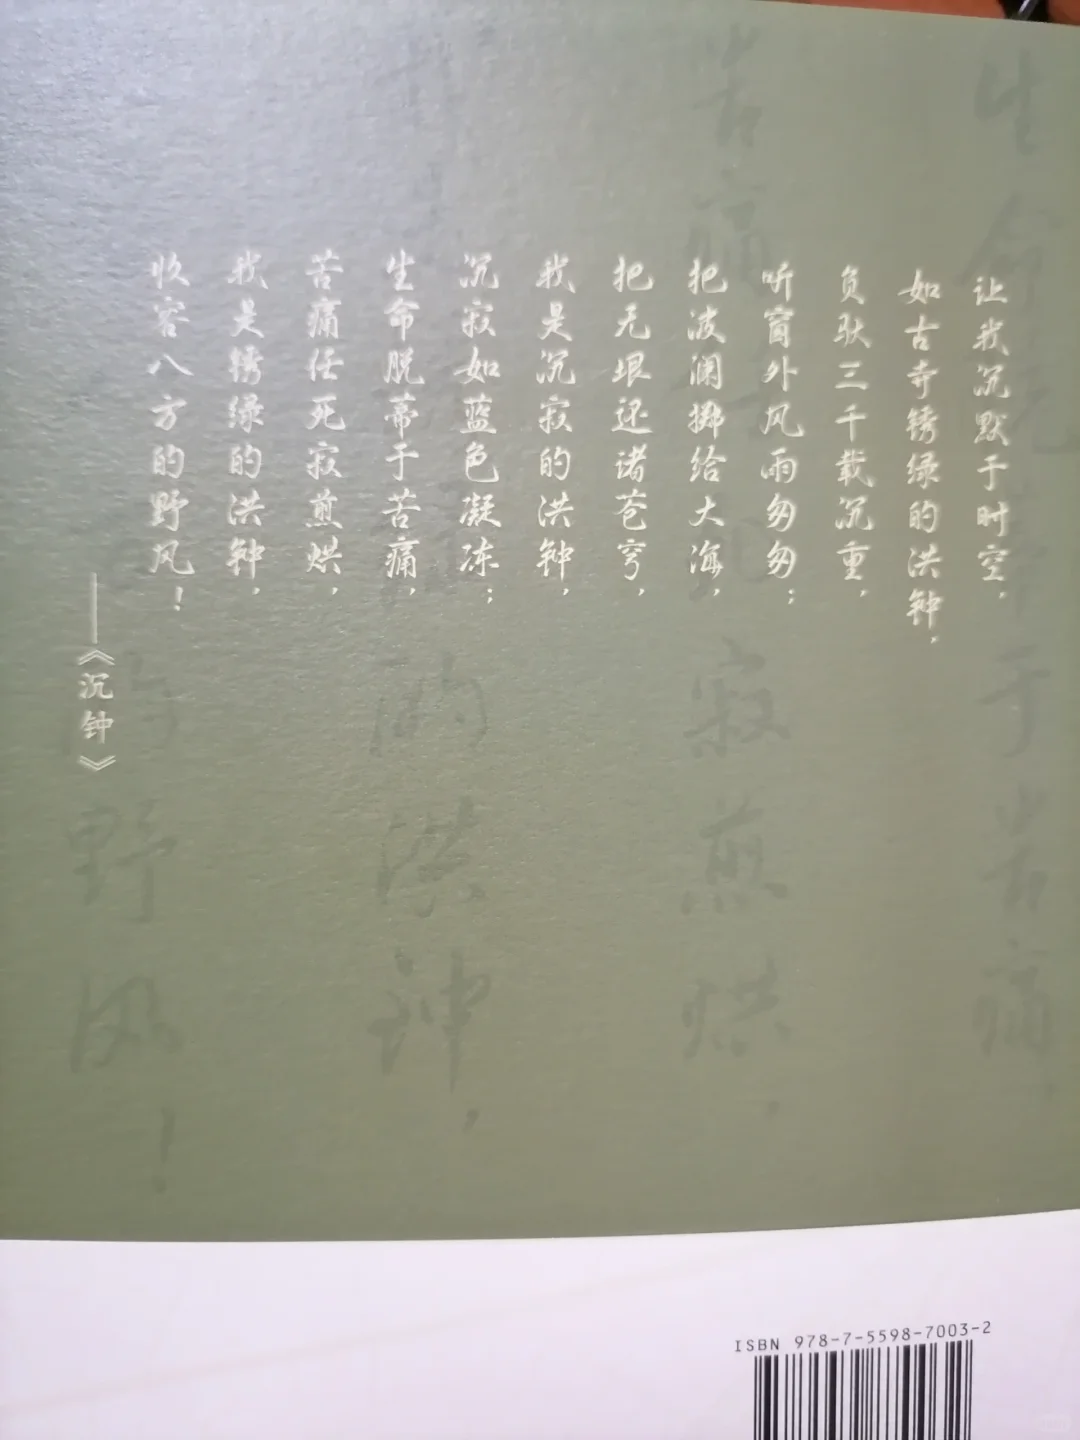 让我沉默于时空，
如古寺锈绿的洪钟，
负驮三千载沉重，
听窗外风雨匆匆；
把波澜掷给大海，
把无垠还诸苍穹，
我是沉寂的洪钟，
沉寂如蓝色凝冻；
生命脱蒂于苦痛，
苦痛任死寂煎烘，
我是锈绿的洪钟，
收容八方的野风！
——《沉钟》
生命 于苦痛
苦痛 寂煎烘，
的洪钟，
野风！
ISBN 978-7-5598-7003-2